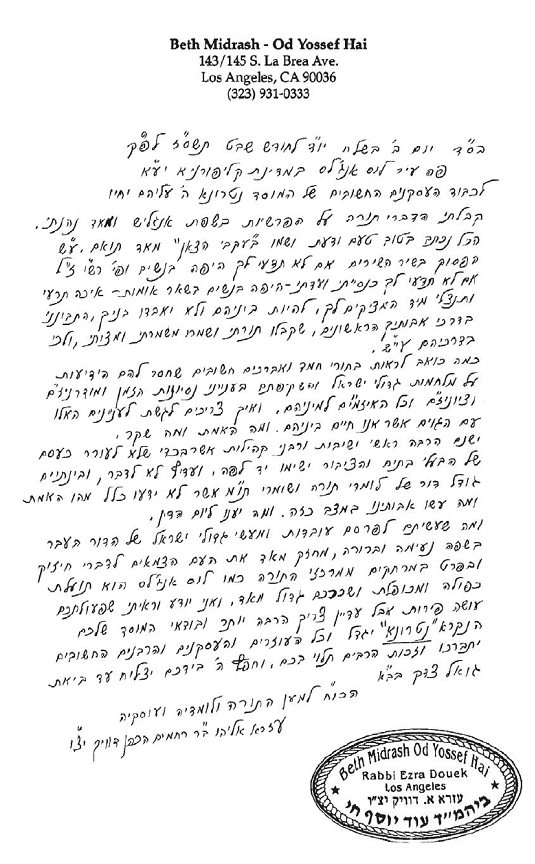 Beth Midrash - Od Yossef Hai
143/145 S. La Brea Ave.
Los Angeles, CA 90036
(323) 931-0333
בס"ד יום ב' בשלח יו"ד לחודש שבט תשס"ז לפ"ק
פה עיר לוס אנג'לס במדינת קליפורניא יע"א
לכבוד העסקנים החשובים של המוסד נטרונא ה' עליהם יחיו
קבלתי הדברי תורה על הפרשיות בשפת אנגליש ומאד נהנתי.
הכל נכתב בטוב טעם ודעת ושמו "בעקבי הצאן" מאד תואם. ע"ש
הפסוק בשיר השירים אם לא תדעי לך היפה בנשים ופי' רש"י ז"ל
אם לא תדעי לך כנסייתי ועדתי - היפה בנשים בשאר אומות - איכה תרעי
ותנצלי מיד המציקים לך, להיות ביניהם ולא יאבדו בניך, התבונני
בדרכי אבותיך הראשונים, שקבלו תורתי ושמרו משמרתי ומצותי, ולכי
בדרכיהם עי"ש.
כמה כואב לראות בחורי חמד ואברכים חשובים שחסר להם הידיעות
על מלחמות גדולי ישראל והשקפתם בעניני נסיונות הזמן ומודרניז"ם
וציוניז"ם וכל האיזמ"ים למיניהם. ואיך צריכים לגשת לענינים האלו
עם הגוים אשר אנו חיים ביניהם. ומה האמת ומה שקר.
ישנם הרבה ראשי ישיבות ורבני קהילות אשר בכדי שלא לעורר כעסם
של הבעלי בתים והציבור ישימו יד לפה, ועדיף לא לדבר, ובינתיים
גודל דור של לומדי תורה ושומרי תו"מ אשר לא ידעו כלל מהו האמת
ומה עשו אבותינו במצב כזה. ומה יענו ליום הדין.
ומה שעשיתם לפרסם עובדות ומעשי גדולי ישראל של הדור העבר
בשפה נעימה וברורה, מחזק מאד את העם הצמאים לדברי חיזוק
ובפרט במרחקים ממרכזי התורה כמו לוס אנג'לס הוא תועלת
כפולה ומכופלת ושכרכם גדול מאד. ואני יודע וראיתי שפעולתכם
עושה פירות אבל עדיין צריך הרבה יותר ובודאי המוסד שלכם
הנקרא "נטרונא" יגדל וכל העוזרים והעסקנים והרבנים החשובים
יתברכו וזכות הרבים תלוי בכם, וחפץ ה' בידכם יצליח עד ביאת
גואל צדק בב"א
הכו"ח למען התורה ולומדיה ועוסקיה
עזרא אליהו בר רחמים הכהן דוויק יצ"ו
Beth Midrash Od Yossef Hai
Rabbi Ezra Douek
Los Angeles
עזרא א. דוויק יצ"ו
ביהמי"ד עוד יוסף חי